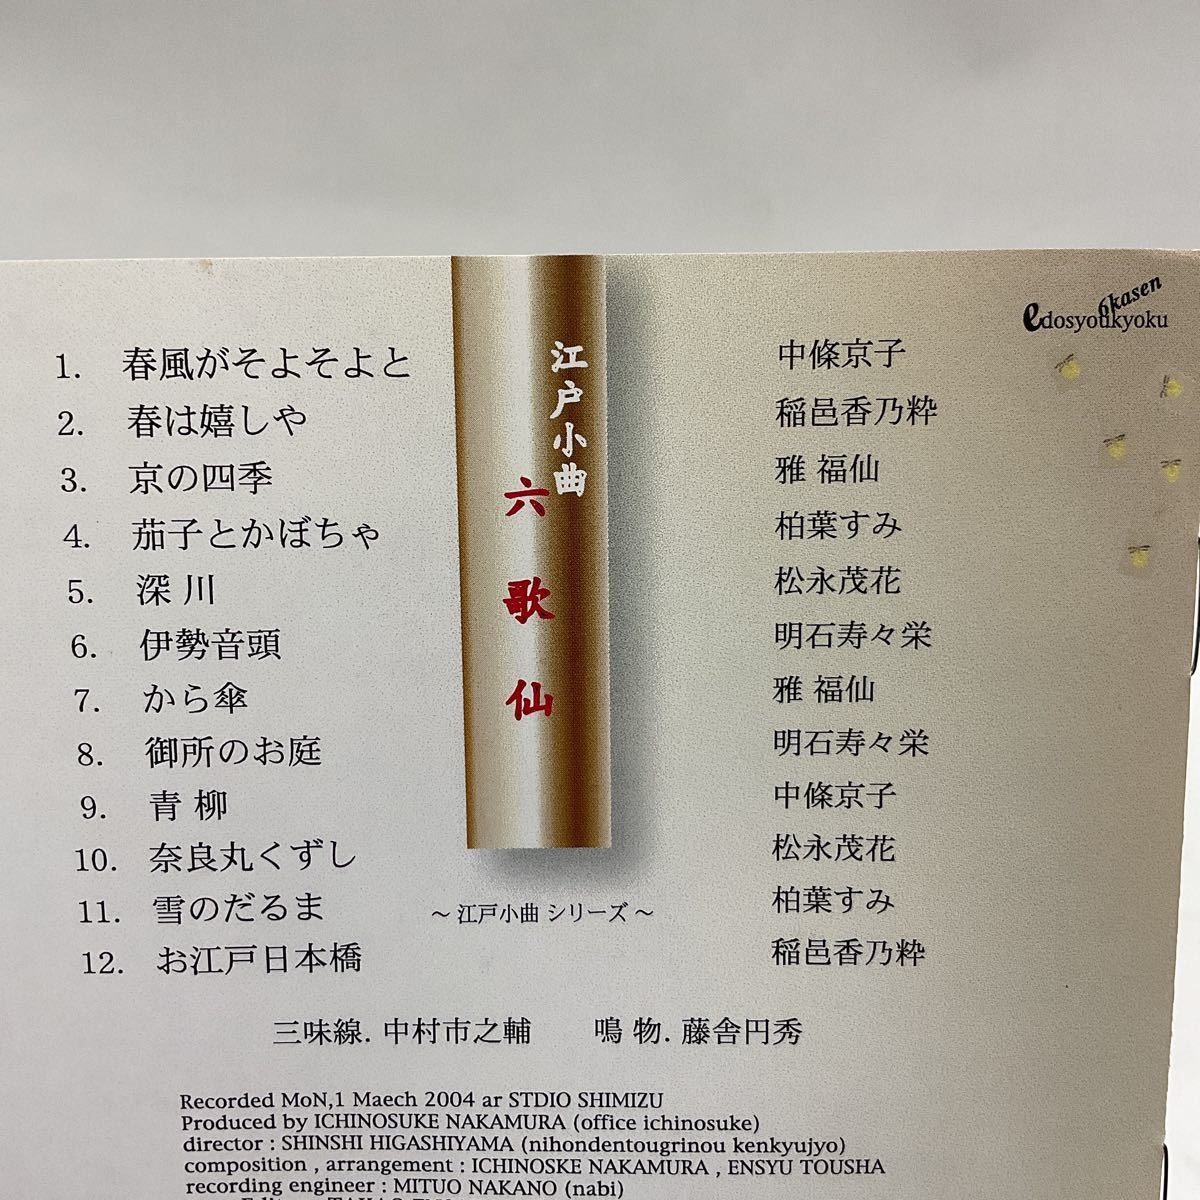 6kasen
edosyoukyoku
1. 春風がそよそよと 中條京子
2. 春は嬉しや 稲邑香乃粋
3. 京の四季 雅 福仙
4. 茄子とかぼちゃ 柏葉すみ
5. 深 川 松永茂花
6. 伊勢音頭 明石寿々栄
7. から傘 雅 福仙
8. 御所のお庭 明石寿々栄
9. 青 柳 中條京子
10. 奈良丸くずし 松永茂花
11. 雪のだるま 柏葉すみ
12. お江戸日本橋 稲邑香乃粋
江戸小曲
六歌仙
～ 江戸小曲 シリーズ ～
三味線. 中村市之輔 鳴 物. 藤舎円秀
Recorded MoN,1 Maech 2004 ar STDIO SHIMIZU
Produced by ICHINOSUKE NAKAMURA (office ichinosuke)
director : SHINSHI HIGASHIYAMA (nihondentougrinou kenkyujyo)
composition , arrangement : ICHINOSKE NAKAMURA , ENSYU TOUSHA
recording engineer : MITUO NAKANO (nabi)